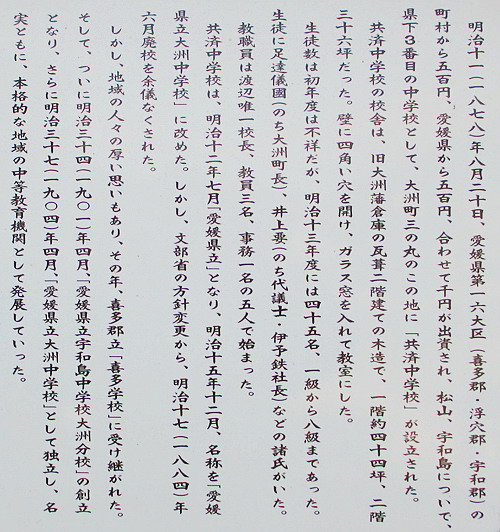 明治十一(一八七八)年八月二十日、愛媛県第一六大区(喜多郡・浮穴郡・宇和郡)の
町村から五百円、愛媛県から五百円、合わせて千円が出資され、松山、宇和島についで、
県下3番目の中学校として、大洲町三の丸のこの地に「共済中学校」が設立された。
共済中学校の校舎は、旧大洲藩倉庫の瓦葺二階建ての木造で、一階約四十四坪、二階
三十六坪だった。壁に四角い穴を開け、ガラス窓を入れて教室にした。
生徒数は初年度は不祥だが、明治十三年度には四十五名、一級から八級まであった。
生徒に足達儀國(のち大洲町長)、井上要(のち代議士・伊予鉄社長)などの諸氏がいた。
教職員は渡辺唯一校長、教員三名、事務一名の五人で始まった。
共済中学校は、明治十二年七月「愛媛県立」となり、明治十五年十二月、名称を「愛媛
県立大洲中学校」に改めた。しかし、文部省の方針変更から、明治十七(一八八四)年
六月廃校を余儀なくされた。
しかし、地域の人々の厚い思いもあり、その年、喜多郡立「喜多学校」に受け継がれた。
そして、ついに明治三十四(一九〇一)年四月、「愛媛県立宇和島中学校大洲分校」の創立
となり、さらに明治三十七(一九〇四)年四月、「愛媛県立大洲中学校」として独立し、名
実ともに、本格的な地域の中等教育機関として発展していった。